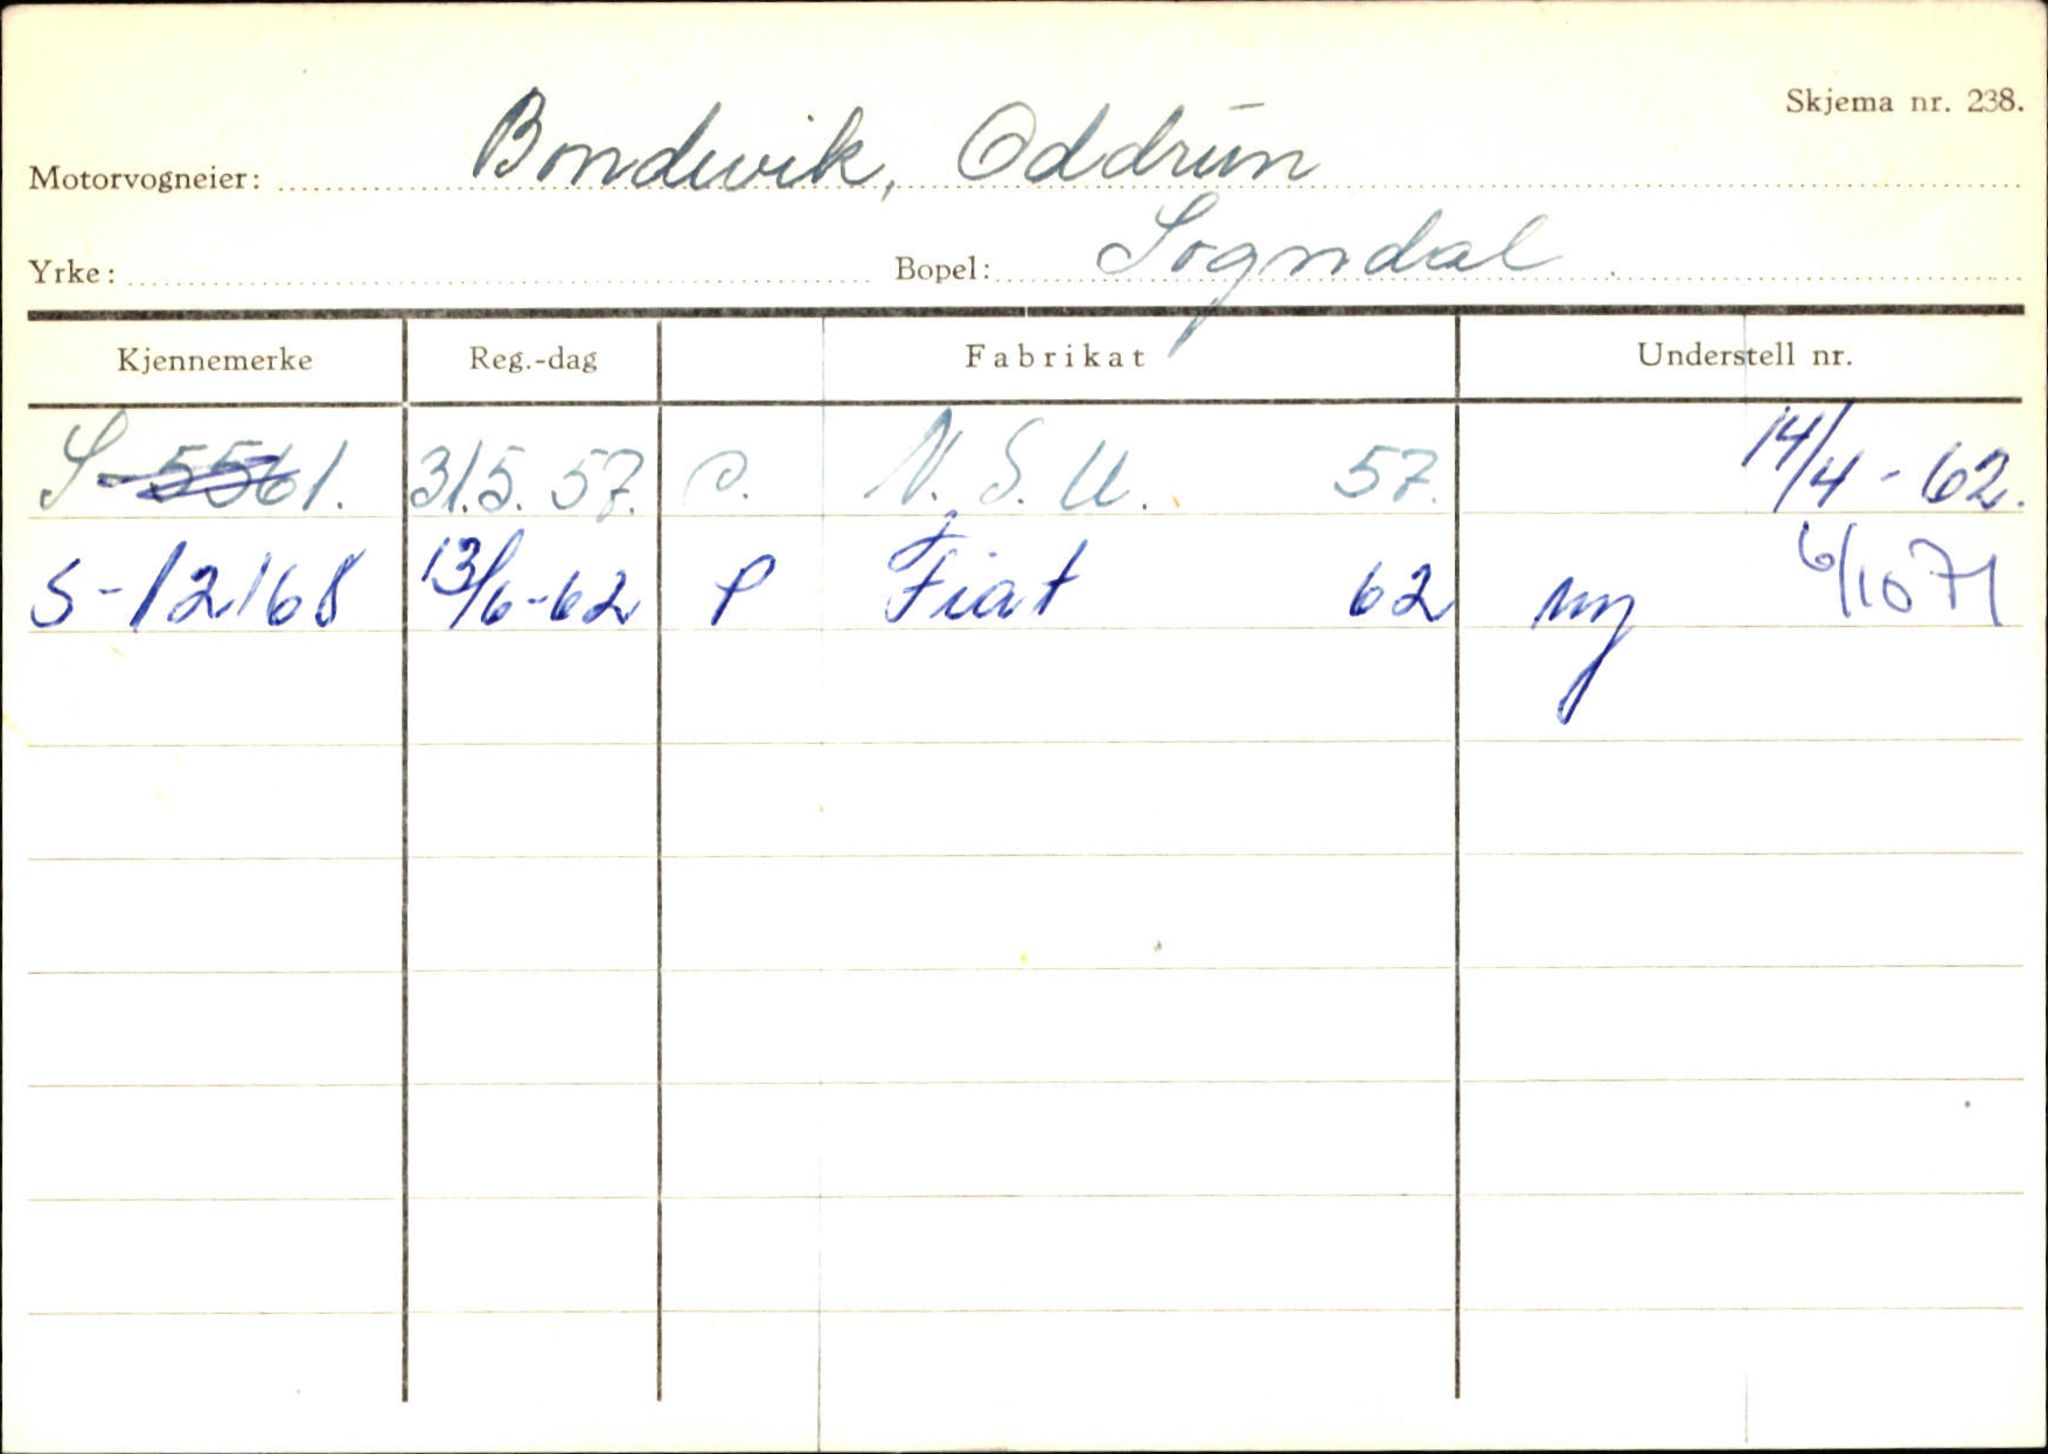 Skjema nr. 238.
Motorvogneier: Bondevik, Oddrun
Yrke: Bopel: Sogndal
Kjennemerke Reg.-dag Fabrikat Understell nr.
S-5561. 31.5.57. P. N.S.U. 57. 14/4-62.
S-12168 13/6-62 P Fiat 62 ny 6/10 71